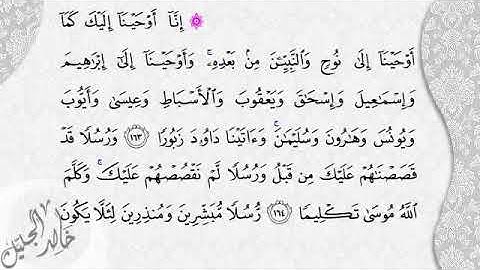 ۞ إِنَّآ أَوۡحَيۡنَآ إِلَيۡكَ كَمَآ
أَوۡحَيۡنَآ إِلَىٰ نُوحٖ وَٱلنَّبِيِّـۧنَ مِنۢ بَعۡدِهِۦۚ وَأَوۡحَيۡنَآ إِلَىٰٓ إِبۡرَٰهِيمَ
وَإِسۡمَٰعِيلَ وَإِسۡحَٰقَ وَيَعۡقُوبَ وَٱلۡأَسۡبَاطِ وَعِيسَىٰ وَأَيُّوبَ
وَيُونُسَ وَهَٰرُونَ وَسُلَيۡمَٰنَۚ وَءَاتَيۡنَا دَاوُۥدَ زَبُورٗا ١٦٣ وَرُسُلٗا قَدۡ
قَصَصۡنَٰهُمۡ عَلَيۡكَ مِن قَبۡلُ وَرُسُلٗا لَّمۡ نَقۡصُصۡهُمۡ عَلَيۡكَۚ وَكَلَّمَ
ٱللَّهُ مُوسَىٰ تَكۡلِيمٗا ١٦٤ رُّسُلٗا مُّبَشِّرِينَ وَمُنذِرِينَ لِئَلَّا يَكُونَ
خالد الجليل